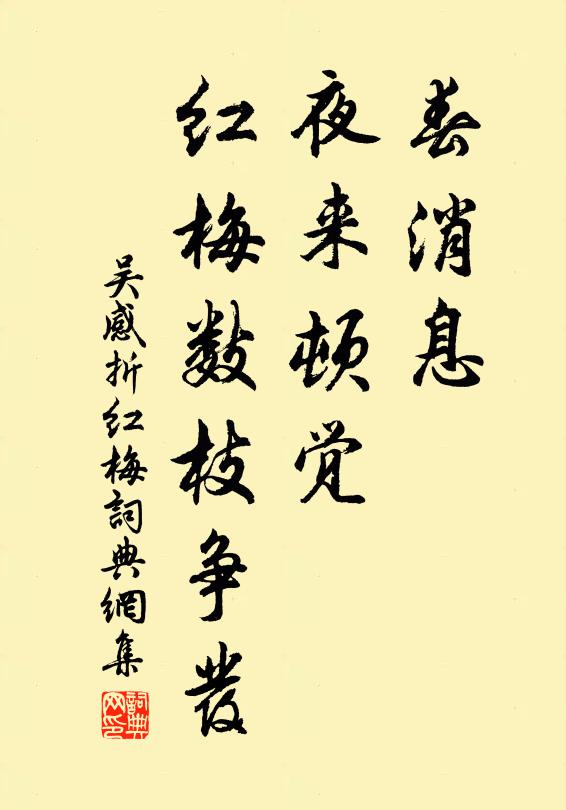 春消息
夜来顿觉
红梅数枝争發
吴感折红梅詞典網集
詞典网印